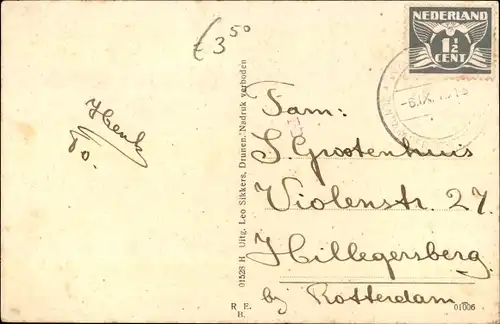 £ 3 50
NEDERLAND
1½
CENT
Henk
Fam:
S. Grootenhuis
Violenstr 27.
Hillegersberg
by Rotterdam.
01528 H Uitg. Leo Sikkers, Drunen. Nadruk verboden
R. E.
B.
01006